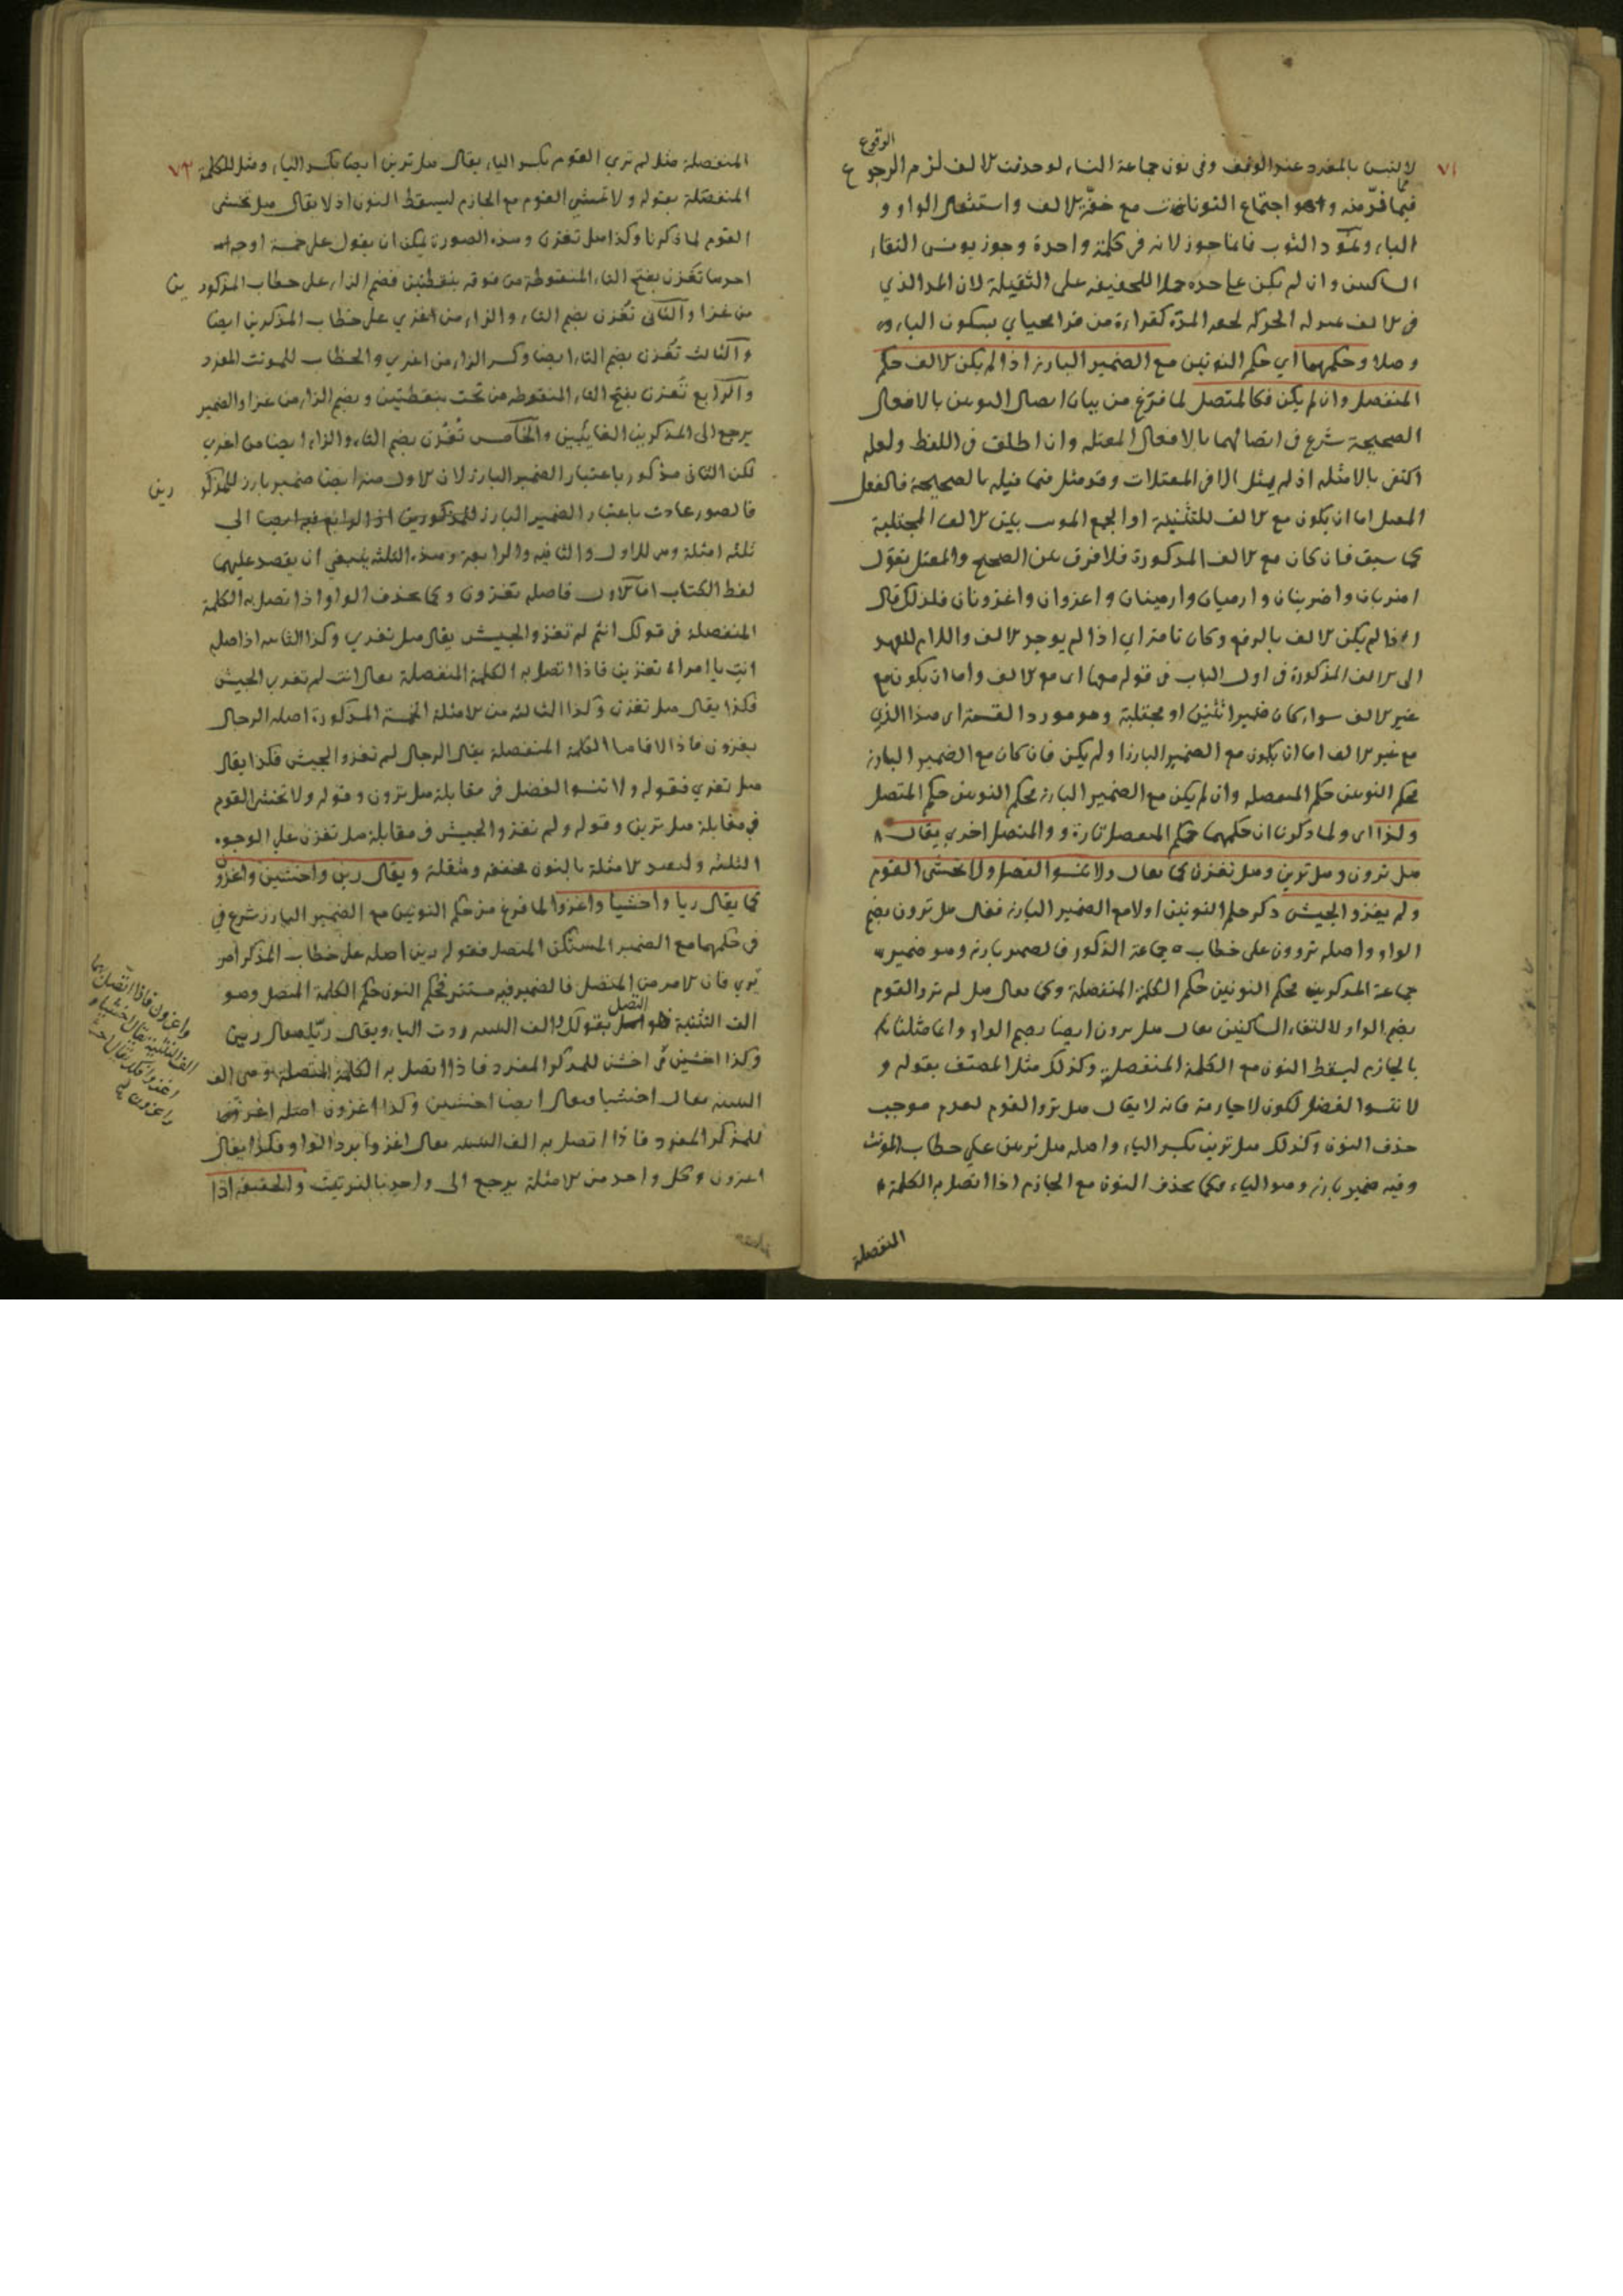 الوقوع
٧١
لالتبس بالمفرد عند الوقف وفى نون جماعة النساء لو حذفت الالف لزم الرجوع
فيما فر منه وهو اجتماع النونات مع خفة الالف واستثقال الواو و
الياء الثوب فانما جوز لانه فى كلمة واحدة وجوز يونس التقاء
الساكنين وان لم يكن على حده حملا للخفيفة على الثقيلة لان المد الذي
فى الالف الحركة كقراءة من قرا محياي بسكون الياء
وصلا وحكمهما اي حكم النونين مع الضمير البارز اذا لم يكن الالف حكم
المنفصل وان لم يكن فكالمتصل لما فرغ من بيان اتصال النونين بالافعال
الصحيحة شرع فى اتصالهما بالافعال المعتله وان اطلق فى اللفظ ولعله
اكتفى بالامثله اذ لم يمثل الا فى المعتلات وقد مثل فيما قبله بالصحيحة فالفعل
المعتل اما ان يكون مع الالف للتثنية او الجمع المونث الالف المجتلبة
كما سبق فان كان مع الالف المذكورة فلا فرق بين الصحيح والمعتل تقول
اضربان واضربنان وارميان وارمينان واغزوان واغزونان فلذلك قال
اذا لم يكن الالف بالرفع وكان تامة اي اذا لم يوجد الالف واللام للعهد
الى الالف المذكورة فى اول الباب فى قوله اى مع الالف واما ان يكون مع
غير الالف سواء كان ضمير اثنين او مجتلبة وهو مورد القسمة اى هذا الذي
مع غير الالف اما ان يكون مع الضمير البارز او لم يكن فان كان مع الضمير البارز
فحكم النونين حكم المنفصله وان لم يكن مع الضمير البارز فحكم النونين حكم المتصل
ولذا اى ولما ذكرنا ان حكمهما حكم المنفصل تارة والمتصل اخري يقال
هل ترون وهل ترين وهل تغزن كما يقال ولا تنسوا الفضل ولا تخشى القوم
ولم يغزو الجيش ذكر حكم النونين اولا مع الضمير البارز فقال هل ترون بضم
الواو واصله تروون على خطاب جماعة الذكور فالضمير بارز وهو ضمير
جماعة المذكورين فحكم النونين حكم الكلمة المنفصلة وكما يقال مثل لم تروا القوم
بضم الواو لالتقاء الساكنين يقال هل ترون ايضا بضم الواو وانما مثلنا
بالجازم ليسقط النون مع الكلمة المنفصلة وكذلك مثل المصنف بقوله و
لا تنسوا الفضل لكون لا جازمة فانه لا يقال هل تروا القوم لعدم موجب
حذف النون وكذلك هل ترين بكسر الياء واصله هل ترين على خطاب المونث
وفيه ضمير بارز وهو الياء وكما يحذف النون مع الجازم اذا اتصل به الكلمة
المنفصلة
٧٢
المنفصلة مثل لم تري القوم بكسر الياء يقال هل ترين ايضا بكسر الياء ومثل للكلمة
المنفصلة بقوله ولا تخشي القوم مع الجازم ليسقط النون اذ لا يقال هل تخشى
القوم لما ذكرنا وكذا هل تغزن وهذه الصورة يمكن ان يقول على خمسة اوجه
احدها تغزن بفتح التاء المنقوطة من فوقه بنقطتين فضم الزاء على خطاب المذكورين
من غزا والثانى تغزن بضم التاء والزاء من اغزي على خطاب المذكورين ايضا
والثالث تغزن بضم التاء ايضا وكسر الزاء من اغزي والخطاب للمونث المفرد
والرابع يغزن بفتح الياء المنقوطه من تحت بنقطتين وبضم الزاء من غزا والضمير
يرجع الى المذكورين الغايبين والخامس يغزن بضم الياء والزاء ايضا من اغزي
لكن الثانى مذكور باعتبار الضمير البارز لان الاول منه ايضا ضمير بارز للمذكورين
فالصور عادت باعتبار الضمير البارز للمذكورين ايضا الى
ثلثه امثلة وهى للاول والثانية والرابعة وهذه الثلثه ينبغي ان يقصد عليهما
لفظ الكتاب اما الاول فاصله تغزون وكما يحذف الواو اذا اتصل به الكلمة
المنفصلة فى قولك انتم لم تغزوا الجيش يقال هل تغزن وكذا الثانيه اذ اصله
انت يا امراة تغزين فاذا اتصل به الكلمة المنفصلة يقال انت لم تغزي الجيش
فكذا يقال هل تغزن وكذا الثالثه من الامثلة الخمسة المذكورة اصله الرجال
يغزون فاذا لاقاها الكلمة المنفصلة يقال الرجال لم يغزوا الجيش فكذا يقال
هل يغزن فقوله ولا تنسوا الفضل فى مقابلة هل ترون وقوله ولا تخشى القوم
فى مقابلة هل ترين وقوله ولم تغزوا الجيش فى مقابلة هل تغزن على الوجوه
الثلثه الامثلة بالنون مخففه ومثقلة ويقال رين واخشين واغزون
كما يقال ريا واخشيا واغزوا لما فرغ من حكم النونين مع الضمير البارز شرع في
فى حكمهما مع الضمير المستكن المتصل فقوله رين اصله على خطاب المذكر امر
تري فان الامر من المتصل فالضمير فيه مستتر فحكم النون حكم الكلمة المتصل وهو
الف التثنية اتصل بقولك الف التثنيه ردت الياء ويقال ريا يقال رين
وكذا اخشين فى اخش للمذكر المفرد فاذا اتصل به الكلمة المتصلة وهى الف
التثنيه يقال اخشيا فيقال ايضا اخشين وكذا اغزون اصله اغز
للمذكر المفرد فاذا اتصل به الف التثنيه يقال اغزوا برد الواو فكذا يقال
اغزون وكل واحد من الامثلة يرجع الى واحد بالترتيب والخفيفه اذا
واغزون فاذا اتصل بهما
الف التثنية يقال اخشيا و
اغزوا فكذا يقال
واغزون